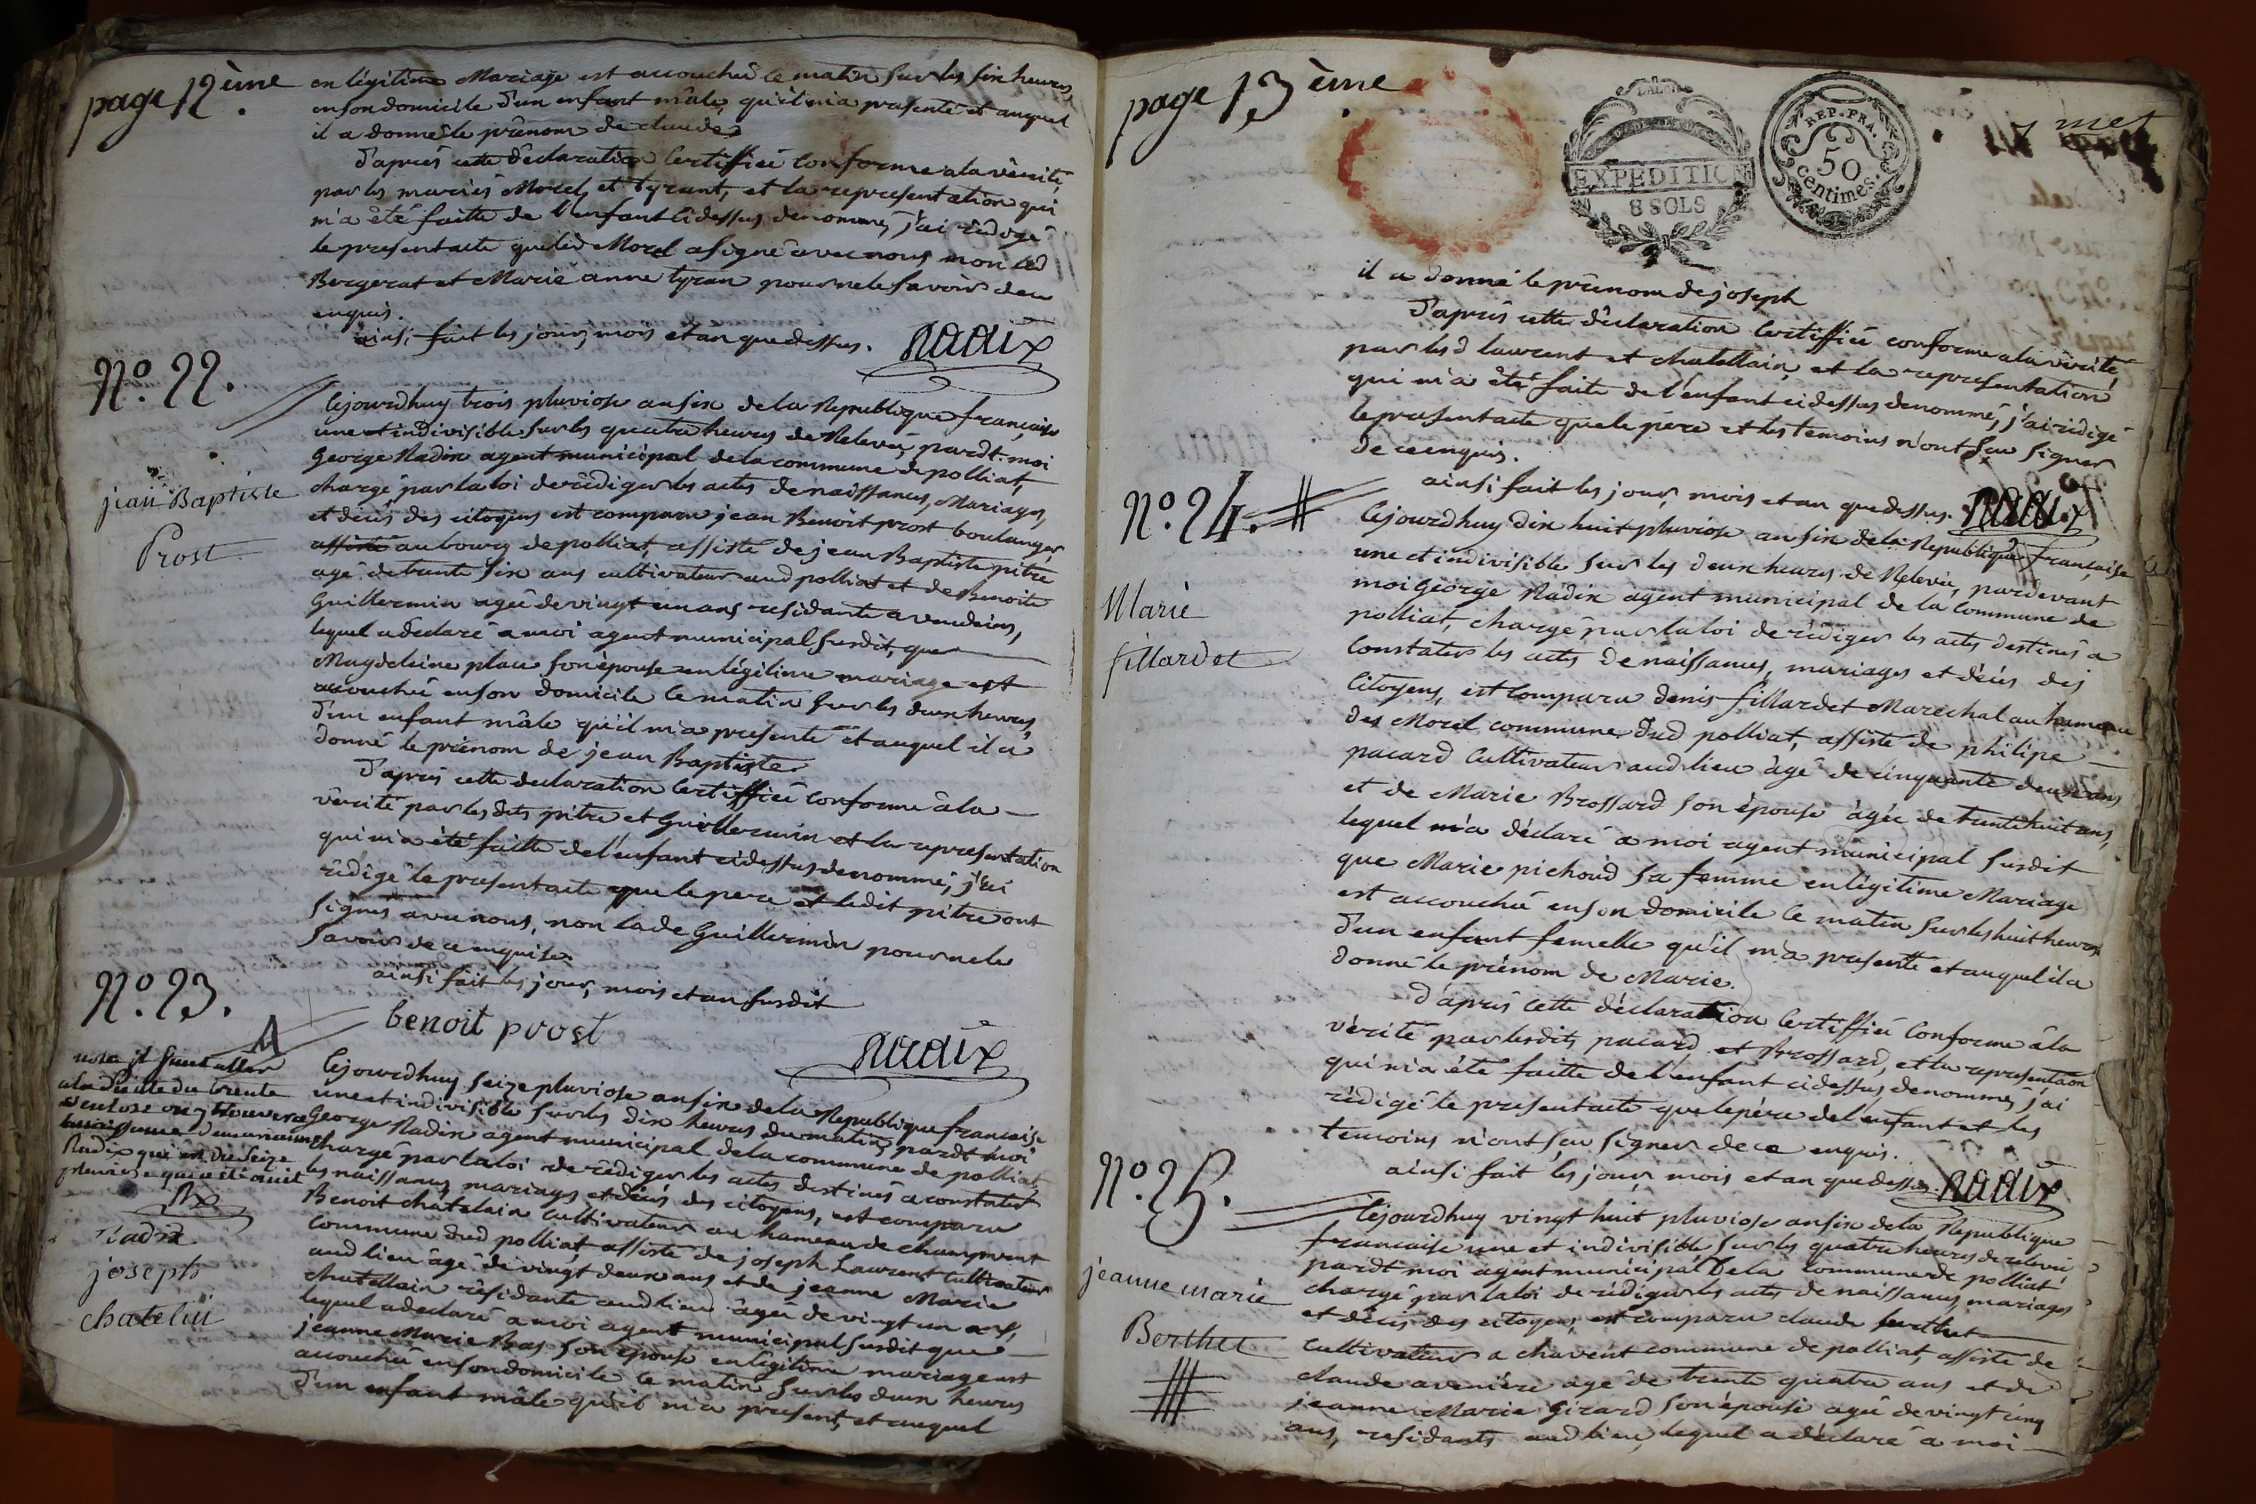 page 12ème
en légitime Mariage est accouchée ce matin sur les six heures,
en son domicile d'un enfant mâle, qu'il m'a presenté et auquel
il a donné le prénom de claude
D'aprués cette déclaration Certiffiée conforme a la vérité,
par les mariés Morel, et tyrant, et la representation qui
m'a été faitte de l'enfant cidessus denommé, j'ai rédigé
le present acte que led Morel a signé avec nous non led
Bergerat et Marie anne tyran pour ne le savoir de ce
enquis.
ainsi fait les jour, mois et an que dessus. Radix
N°. 22.
jean Baptiste
Prost
Cejourdhuy trois pluviose an six de la Republique francaise
une et indivisible sur les quatre heures de Relevée, pardt. moi
George Radix agent municipal de la commune de polliat,
chargé par la loi de rédiger les actes de naissances, Mariages,
et décès des citoyens est comparu jean Benoit prost boulanger
assisté au bourg de polliat, assisté de jean Baptiste pitre
agé de trente six ans cultivateur aud polliat et de Benoite
Guillermin agée de vingt un ans residante a vandeins,
lequel a declaré a moi agent municipal susdit, que
Magdeleine place son épouse en légitime mariage est
accouchée en son domicile ce matin sur les deux heures,
d'un enfant mâle qu'il m'a presenté et auquel il a
donné le prénom de jean Baptiste
D'aprués cette declaration Certiffiée conforme à la
vérité par les dits pitre et Guillermin et la representation
qui m'a été faitte de l'enfant cidessus denommé, j'ai
rédigé le present acte que le pere et ledit pitre ont
signés avec nous, non lade Guillermin pour ne le
savoir de ce enquise
ainsi fait les jour, mois et an susdit
benoit prost
Radix
N°. 23.
nota il faut aller
a la du trente
ventose ou trouvera
naissance
Radix qui est du seize
pluviose qui a été omit
Rx
Radix
joseph
chatelin
Cejourdhuy seize pluviose an six de la Republique francaise
une et indivisible sur les dix heures du matin, pardt moi
George Radix agent municipal de la commune de polliat,
chargé par la loi de rédiger les actes destinés a constater
les naissances, mariages et décès des citoyens, est comparu
Benoit chatelain cultivateur au hameau de champvent
commune dud polliat assisté de joseph Laurent Cultivateur
aud lieu âgé de vingt deux ans et de jeanne Marie
chatellain résidante aud lieu âgée de vingt un ans,
lequel a declaré a moi agent municipal susdit que
jeanne Marie Bas son épouse en légitime mariage est
accouchée en son domicile ce matin sur les deux heures
d'un enfant mâle qu'il m'a presenté et auquel
page 13ème
EXPEDITION
8 SOLS
REP. FRA.
50
centimes.
il a donné le prénom de joseph
D'aprués cette déclaration Certiffiée conforme a la vérité
par lesd laurent et chatellain, et la representation
qui m'a été faite de l'enfant cidessus denommé, j'ai rédigé
le present acte que le père et les temoins n'ont scu signer
de ce enquis.
ainsi fait les jour, mois et an que dessus. Radix
N°. 24.
Marie
fillardet
Cejourdhuy dix huit pluviose an six de la Republique francaise
une et indivisible sur les deux heures de Relevée, pardevant
moi George Radix agent municipal de la Commune de
polliat, chargé par la loi de rédiger les actes destinés a
Constater les actes de naissances, mariages et décès des
Citoyens, est comparu denis fillardet Marechal au hameau
des Morel commune dud polliat, assisté de philipe
pacard Cultivateur aud lieu âgé de cinquante deux ans
et de Marie Brossard son épouse âgée de trente huit ans,
lequel m'a déclaré a moi agent municipal susdit
que Marie pichoud sa femme en légitime Mariage
est accouchée en son domicile ce matin sur les huit heures
d'un enfant femelle qu'il m'a presenté et auquel il a
donné le prénom de Marie.
D'aprués cette déclaration Certiffiée Conforme à la
vérité par lesdits pacard et Brossard, et la representaon
qui m'a été faitte de l'enfant cidessus denommé, j'ai
rédigé le present acte que le père de l'enfant et les
temoins n'ont scu signer de ce enquis.
ainsi fait les jour, mois et an que dessus. Radix
N°. 25.
jeanne marie
Berthet
Cejourdhuy vingt huit pluviose an six de la Republique
francaise une et indivisible sur les quatre heures de relevée
pardt moi agent municipal de la commune de polliat
chargé par la loi de rédiger les actes de naissances, mariages
et décès des citoyens, est comparu claude berthet
cultivateur a chavent commune de polliat, assisté de
claude aveniere agé de trente quatre ans et de
jeanne Marie Girard son épouse agée de vingt cinq
ans, residants aud lieu, lequel a déclaré a moi